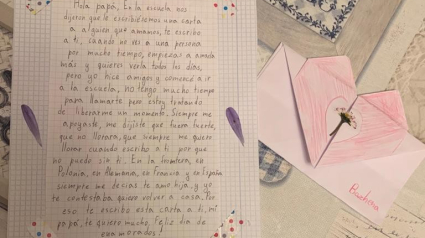 Hola papá, En la escuela nos
dijeron que le escribiésemos una carta
a alguien que amamos, te escribo
a ti, cuando no ves a una persona
por mucho tiempo, empiezas a amarla
más y quieres verla todos los días,
pero yo hice amigos y comencé a ir
a la escuela, no tengo mucho tiempo
para llamarte pero estoy tratando
de liberarme un momento. Siempre me
apoyaste, me dijiste que fuera fuerte,
que no llorara, que siempre me quiere
llorar cuando escribo a ti, por que
no puedo sin ti. En la frontera, en
Polonia, en Alemania, en Francia y en España
siempre me decías te amo hija, y yo
te contestaba quiero volver a casa. Por
eso te escribo esta carta a ti, mi
papá, te quiero mucho. Feliz día de
enamorados!